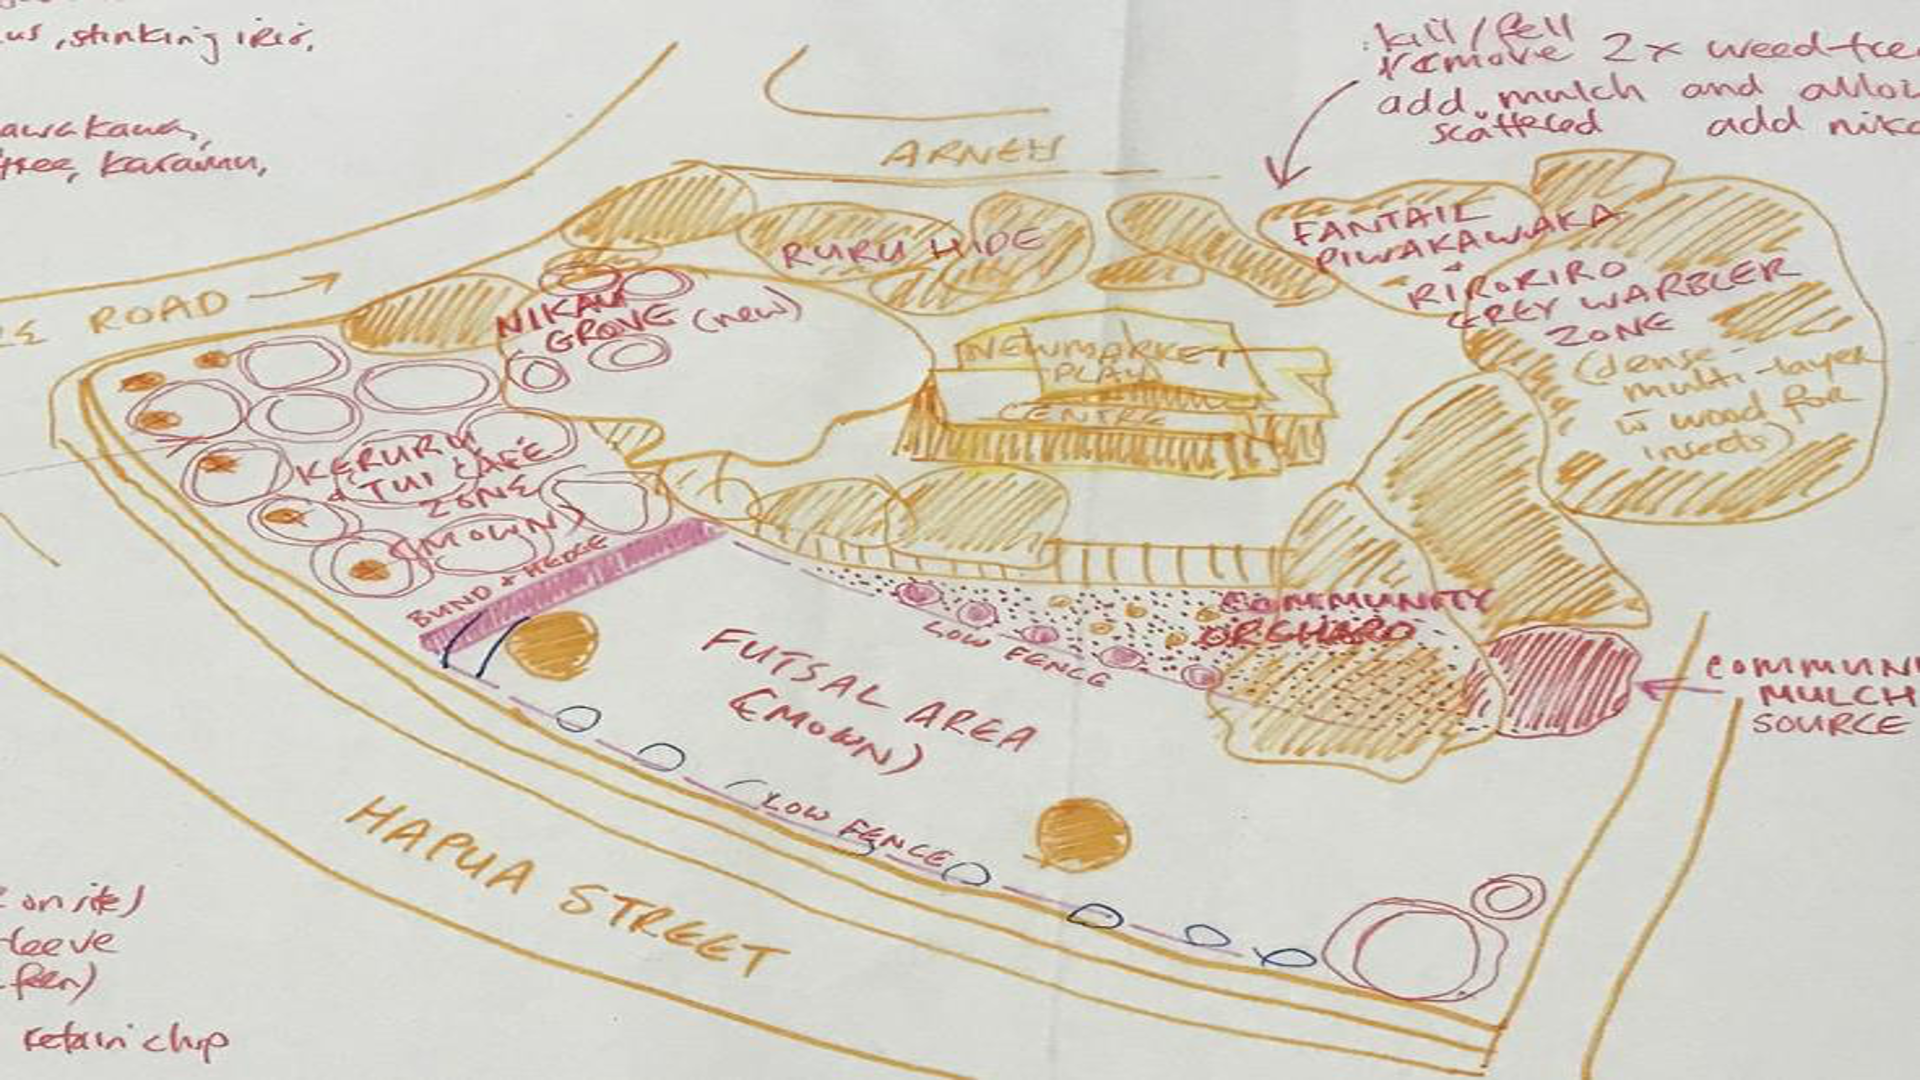 us, stinking iris,
kill/fell
remove 2x weed-tree
add mulch and allow
scattered add nika
awakawa,
tree, karamu,
ARNEY
ROAD →
RURU HIDE
FANTAIL
PIWAKAWAKA
+
RIRORIRO
GREY WARBLER
ZONE
(dense
multi-layer
w wood for
insects)
NIKAU
GROVE (new)
NEWMARKET
PLAY
CENTRE
KERURU
& TUI CAFE
ZONE
(MOWN)
BUND + HEDGE
COMMUNITY
ORCHARD
LOW FENCE
FUTSAL AREA
(MOWN)
COMMUNI
MULCH
SOURCE
(LOW FENCE
HAPUA STREET
on site)
leeve
retain chip